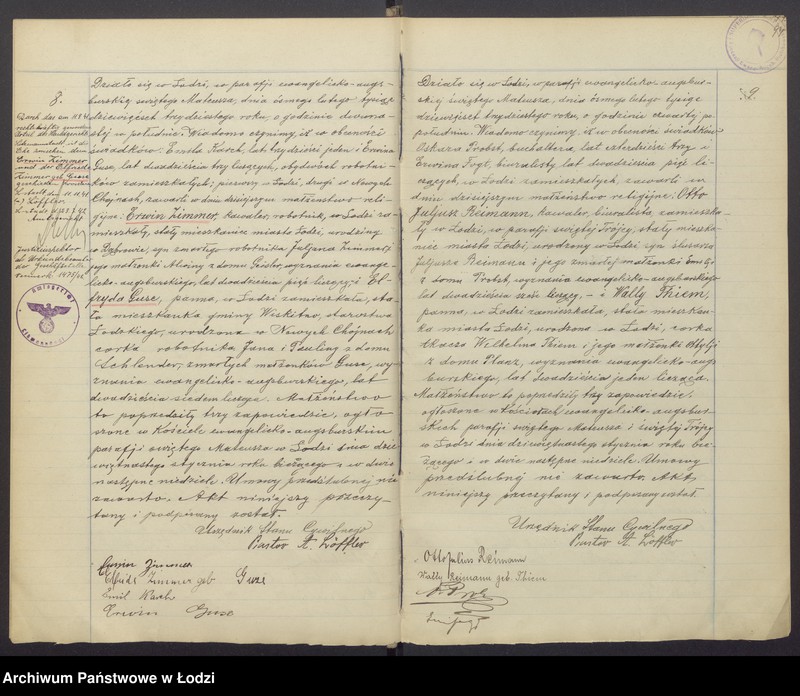 8.
Działo się w Łodzi, w parafji ewangelicko-augs-
burskiej świętego Mateusza, dnia ósmego lutego tysiąc
dziewięćset trzydziestego roku, o godzinie dwuna-
stej w południe. Wiadomo czynimy, iż w obecności
świadków: Emila Karch, lat trzydzieści jeden i Erwina
Guse, lat dwadzieścia trzy liczących, obydwóch robotni-
ków zamieszkałych: pierwszy w Łodzi, drugi w Nowych
Chojnach, zawarto w dniu dzisiejszym małżeństwo reli-
gijne: Erwin Zimmer, kawaler, robotnik, w Łodzi za-
mieszkały, stały mieszkaniec miasta Łodzi, urodzony
w Dąbrowie, syn zmarłego robotnika Juljana Zimmer i
jego małżonki Alwiny z domu Geisler, wyznania ewange-
licko-augsburskiego, lat dwadzieścia pięć liczący i El-
fryda Guse, panna, w Łodzi zamieszkała, sta-
ła mieszkanka gminy Wiskitno, starostwa
Łódzkiego, urodzona w Nowych Chojnach
córka robotnika Jana i Pauliny z domu
Schlender, zmarłych małżonków Guse, wy-
znania ewangelicko-augsburskiego, lat
dwadzieścia siedem licząca. Małżeństwo
to poprzedziły trzy zapowiedzie, ogło-
szone w Kościele ewangelicko-augsburskim
parafji świętego Mateusza w Łodzi dnia dzie-
więtnastego stycznia roku bieżącego i w dwie
następne niedziele. Umowy przedślubnej nie
zawarto. Akt niniejszy przeczy-
tany i podpisany został.
Urzędnik Stanu Cywilnego
Pastor A. Löffler
Erwin Zimmer
Elfrida Zimmer geb Guse
Emil Karch
Erwin Guse
Erwin Zimmer
und der Elfriede
Zimmer geb. Guse
geschieden
Löffler
Justizinspektor
Amtsgericht
9.
Działo się w Łodzi, w parafji ewangelicko-augsbur-
skiej świętego Mateusza, dnia ósmego lutego tysiąc
dziewięćset trzydziestego roku, o godzinie czwartej po
południu. Wiadomo czynimy, iż w obecności świadków
Oskara Probst, buchaltera, lat czterdzieści trzy i
Erwina Fogt, biuralisty, lat dwadzieścia pięć li-
czących, w Łodzi zamieszkałych, zawarto w
dniu dzisiejszym małżeństwo religijne: Otto
Juljusz Reimann, kawaler, biuralista, zamieszka-
ły w Łodzi, w parafji świętej Trójcy, stały mieszka-
niec miasta Łodzi, urodzony w Łodzi, syn ślusarza
Juljusza Reimann i jego zmarłej małżonki
z domu Probst, wyznania ewangelicko-augsburskiego
lat dwadzieścia sześć liczący, - i Wally Thiem,
panna, w Łodzi zamieszkała, stała mieszkan-
ka miasta Łodzi, urodzona w Łodzi, córka
tkacza Wilhelma Thiem i jego małżonki Otylji
z domu Placz, wyznania ewangelicko-augs-
burskiego, lat dwadzieścia jeden licząca.
Małżeństwo to poprzedziły trzy zapowiedzie,
ogłoszone w Kościołach ewangelicko-augsbur-
skich parafji świętego Mateusza i świętej Trójcy
w Łodzi dnia dziewiętnastego stycznia roku bie-
żącego i w dwie następne niedziele. Umowy
przedślubnej nie zawarto. Akt
niniejszy przeczytany i podpisany został.
Urzędnik Stanu Cywilnego
Pastor A. Löffler
Otto Julius Reimann
Wally Reimann geb. Thiem
Archiwum Państwowe w Łodzi